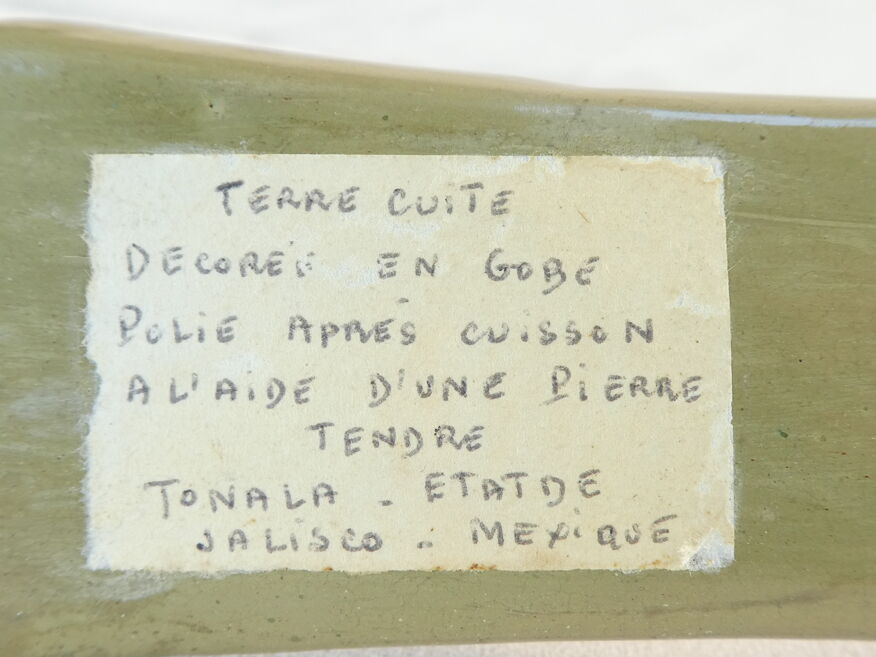 TERRE CUITE
DECORÉE EN GOBE
POLIE APRÉS CUISSON
A L'AIDE D'UNE PIERRE
TENDRE
TONALA - ETAT DE
JALISCO - MEXIQUE